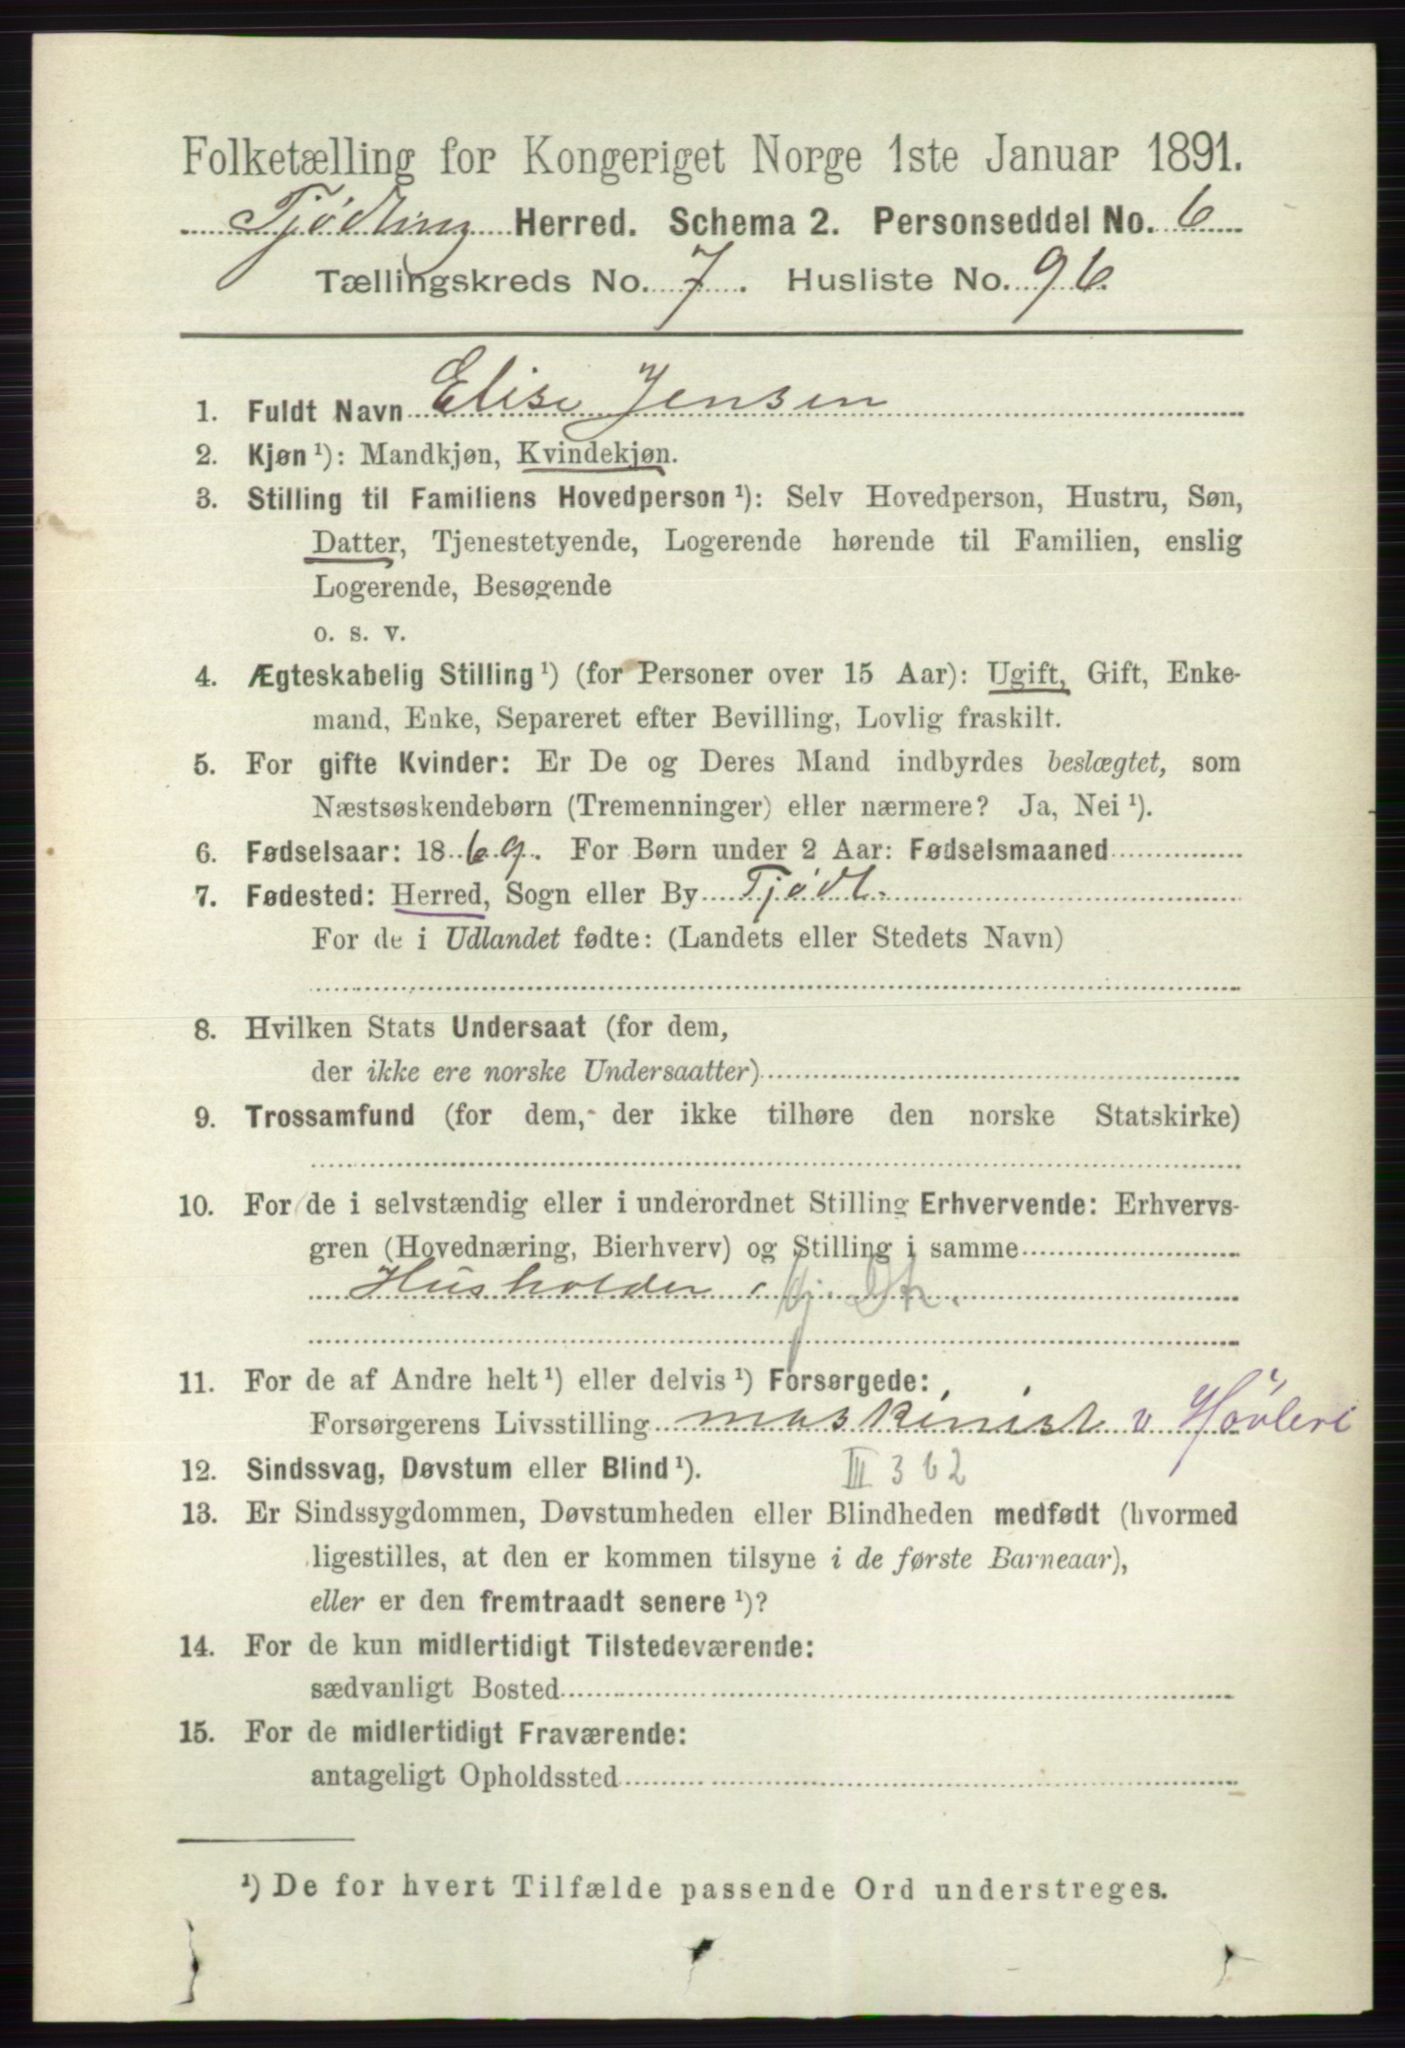 Folketælling for Kongeriget Norge 1ste Januar 1891.
Tjødling Herred. Schema 2. Personseddel No. 6
Tællingskreds No. 7. Husliste No. 96.
1. Fuldt Navn Elise Jensen
2. Kjøn ¹): Mandkjøn, Kvindekjøn.
3. Stilling til Familiens Hovedperson ¹): Selv Hovedperson, Hustru, Søn,
Datter, Tjenestetyende, Logerende hørende til Familien, enslig
Logerende, Besøgende
o. s. v.
4. Ægteskabelig Stilling ¹) (for Personer over 15 Aar): Ugift, Gift, Enke-
mand, Enke, Separeret efter Bevilling, Lovlig fraskilt.
5. For gifte Kvinder: Er De og Deres Mand indbyrdes beslægtet, som
Næstsøskendebørn (Tremenninger) eller nærmere? Ja, Nei ¹).
6. Fødselsaar: 1869. For Børn under 2 Aar: Fødselsmaaned
7. Fødested: Herred, Sogn eller By Tjødl.
For de i Udlandet fødte: (Landets eller Stedets Navn)
8. Hvilken Stats Undersaat (for dem,
der ikke ere norske Undersaatter)
9. Trossamfund (for dem, der ikke tilhøre den norske Statskirke)
10. For de i selvstændig eller i underordnet Stilling Erhvervende: Erhvervs-
gren (Hovednæring, Bierhverv) og Stilling i samme
Husholder
11. For de af Andre helt ¹) eller delvis ¹) Forsørgede:
Forsørgerens Livsstilling maskinist v Høvleri
12. Sindssvag, Døvstum eller Blind ¹). III 362
13. Er Sindssygdommen, Døvstumheden eller Blindheden medfødt (hvormed
ligestilles, at den er kommen tilsyne i de første Barneaar),
eller er den fremtraadt senere ¹)?
14. For de kun midlertidigt Tilstedeværende:
sædvanligt Bosted
15. For de midlertidigt Fraværende:
antageligt Opholdssted
¹) De for hvert Tilfælde passende Ord understreges.